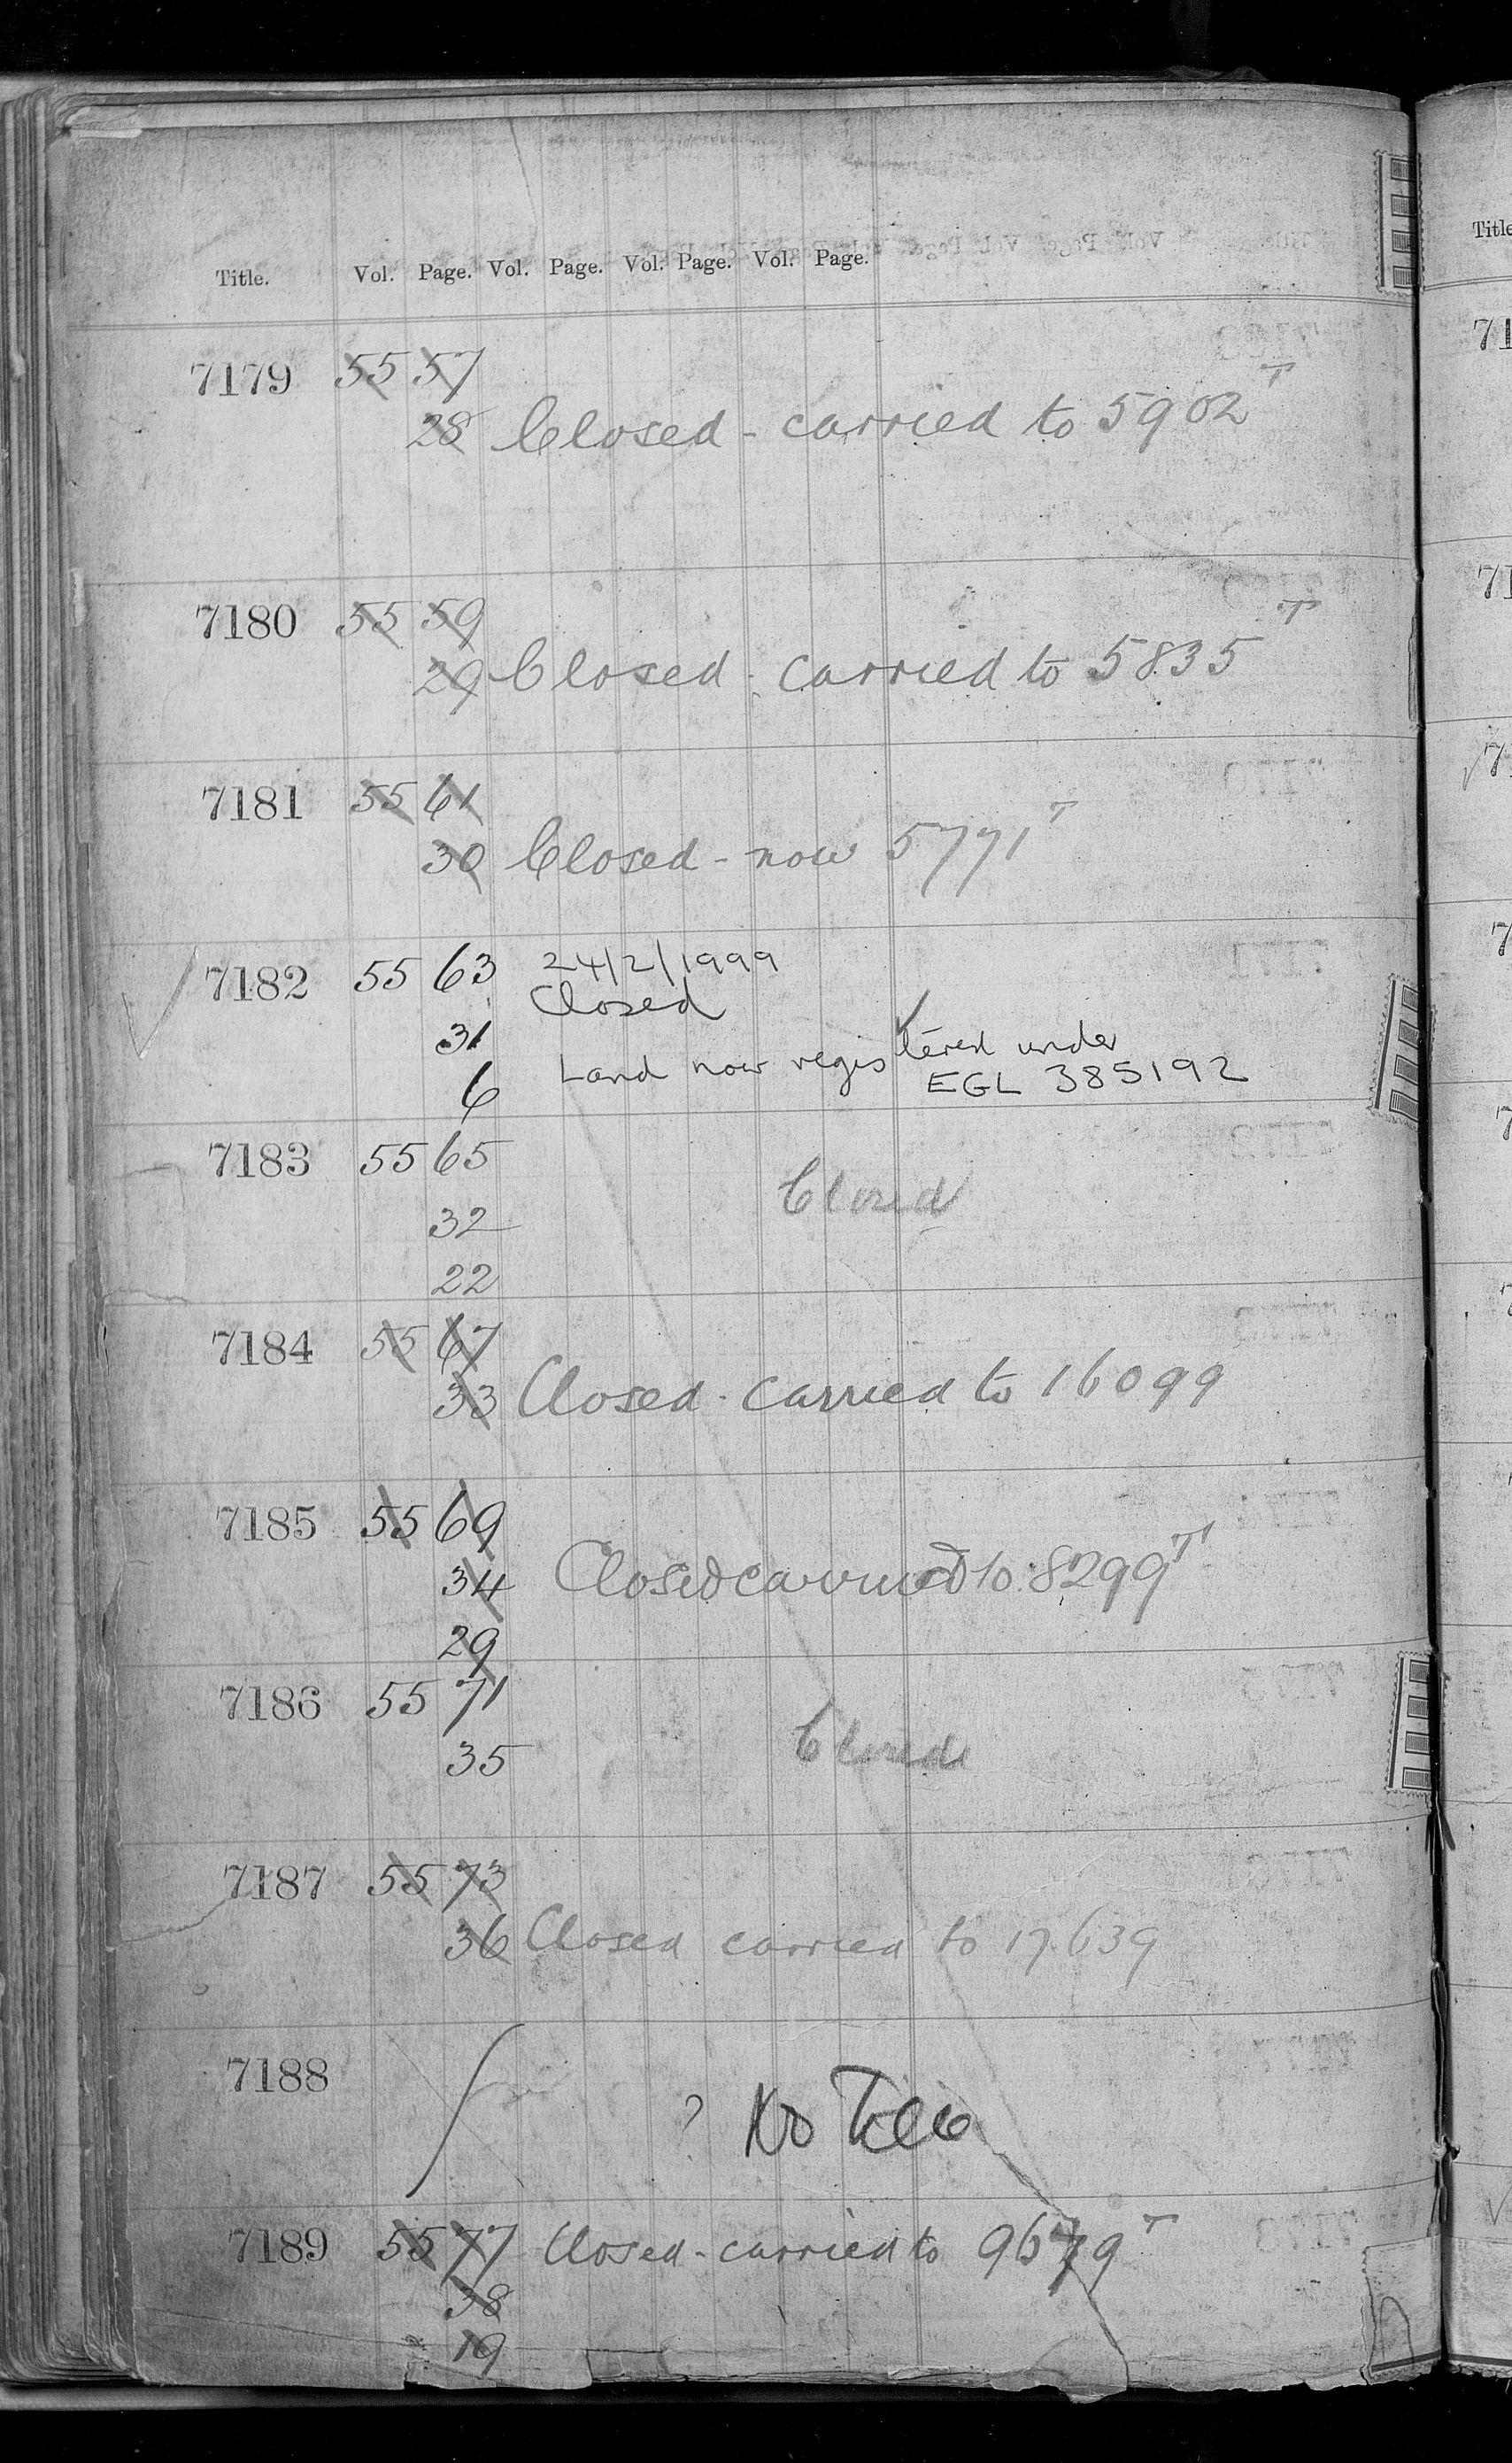 Title. Vol. Page. Vol. Page. Vol. Page. Vol. Page.
7179 55 57
28 Closed - carried to 5902 T
7180 55 59
29 Closed - carried to 5835 T
7181 55 61
30 Closed - now 5771 T
7182 55 63 24/2/1999
Closed
31
Land now registered under
6 EGL 385192
7183 55 65
Closed
32
22
7184 55 67
33 Closed - carried to 16099
7185 55 69
34 Closed carried to 8299 T
29
7186 55 71
Closed
35
7187 55 73
36 Closed carried to 17639
7188
? No
7189 55 77 Closed - carried to 9679 T
38
19
Title
71
71
7
7
7